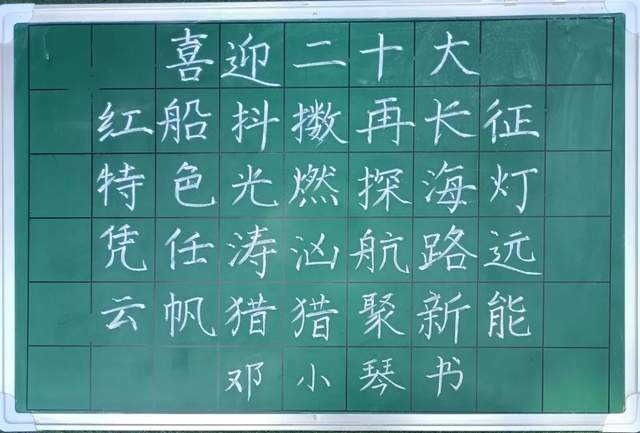 喜迎二十大
红船抖擞再长征
特色光燃探海灯
凭任涛汹航路远
云帆猎猎聚新能
邓小琴书